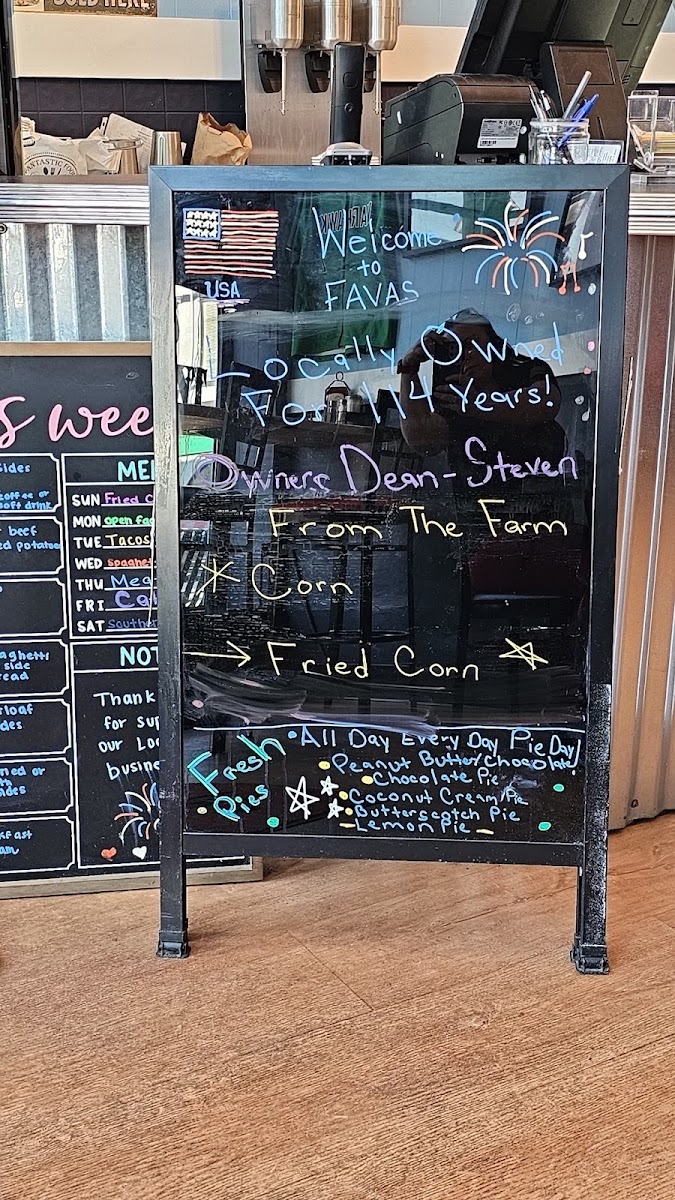 SOLD HERE
USA
Welcome
to
FAVAS
Locally Owned
For 114 Years!
Owners Dean-Steven
From The Farm
Corn
Fried Corn
Fresh
Pies
All Day Every Day Pie Day!
Peanut Butter/Chocolate
Chocolate Pie
Coconut Cream Pie
Butterscotch Pie
Lemon Pie
s wee
sides
coffee or
soft drink
beef
ed potatoe
aghetti
side
read
rloaf
des
ned or
des
kfast
am
ME
SUN Fried C
MON open fac
TUE Tacos
WED spaghe
THU Mea
FRI Ca
SAT Southe
NOT
Thank
for sup
our Loc
busine